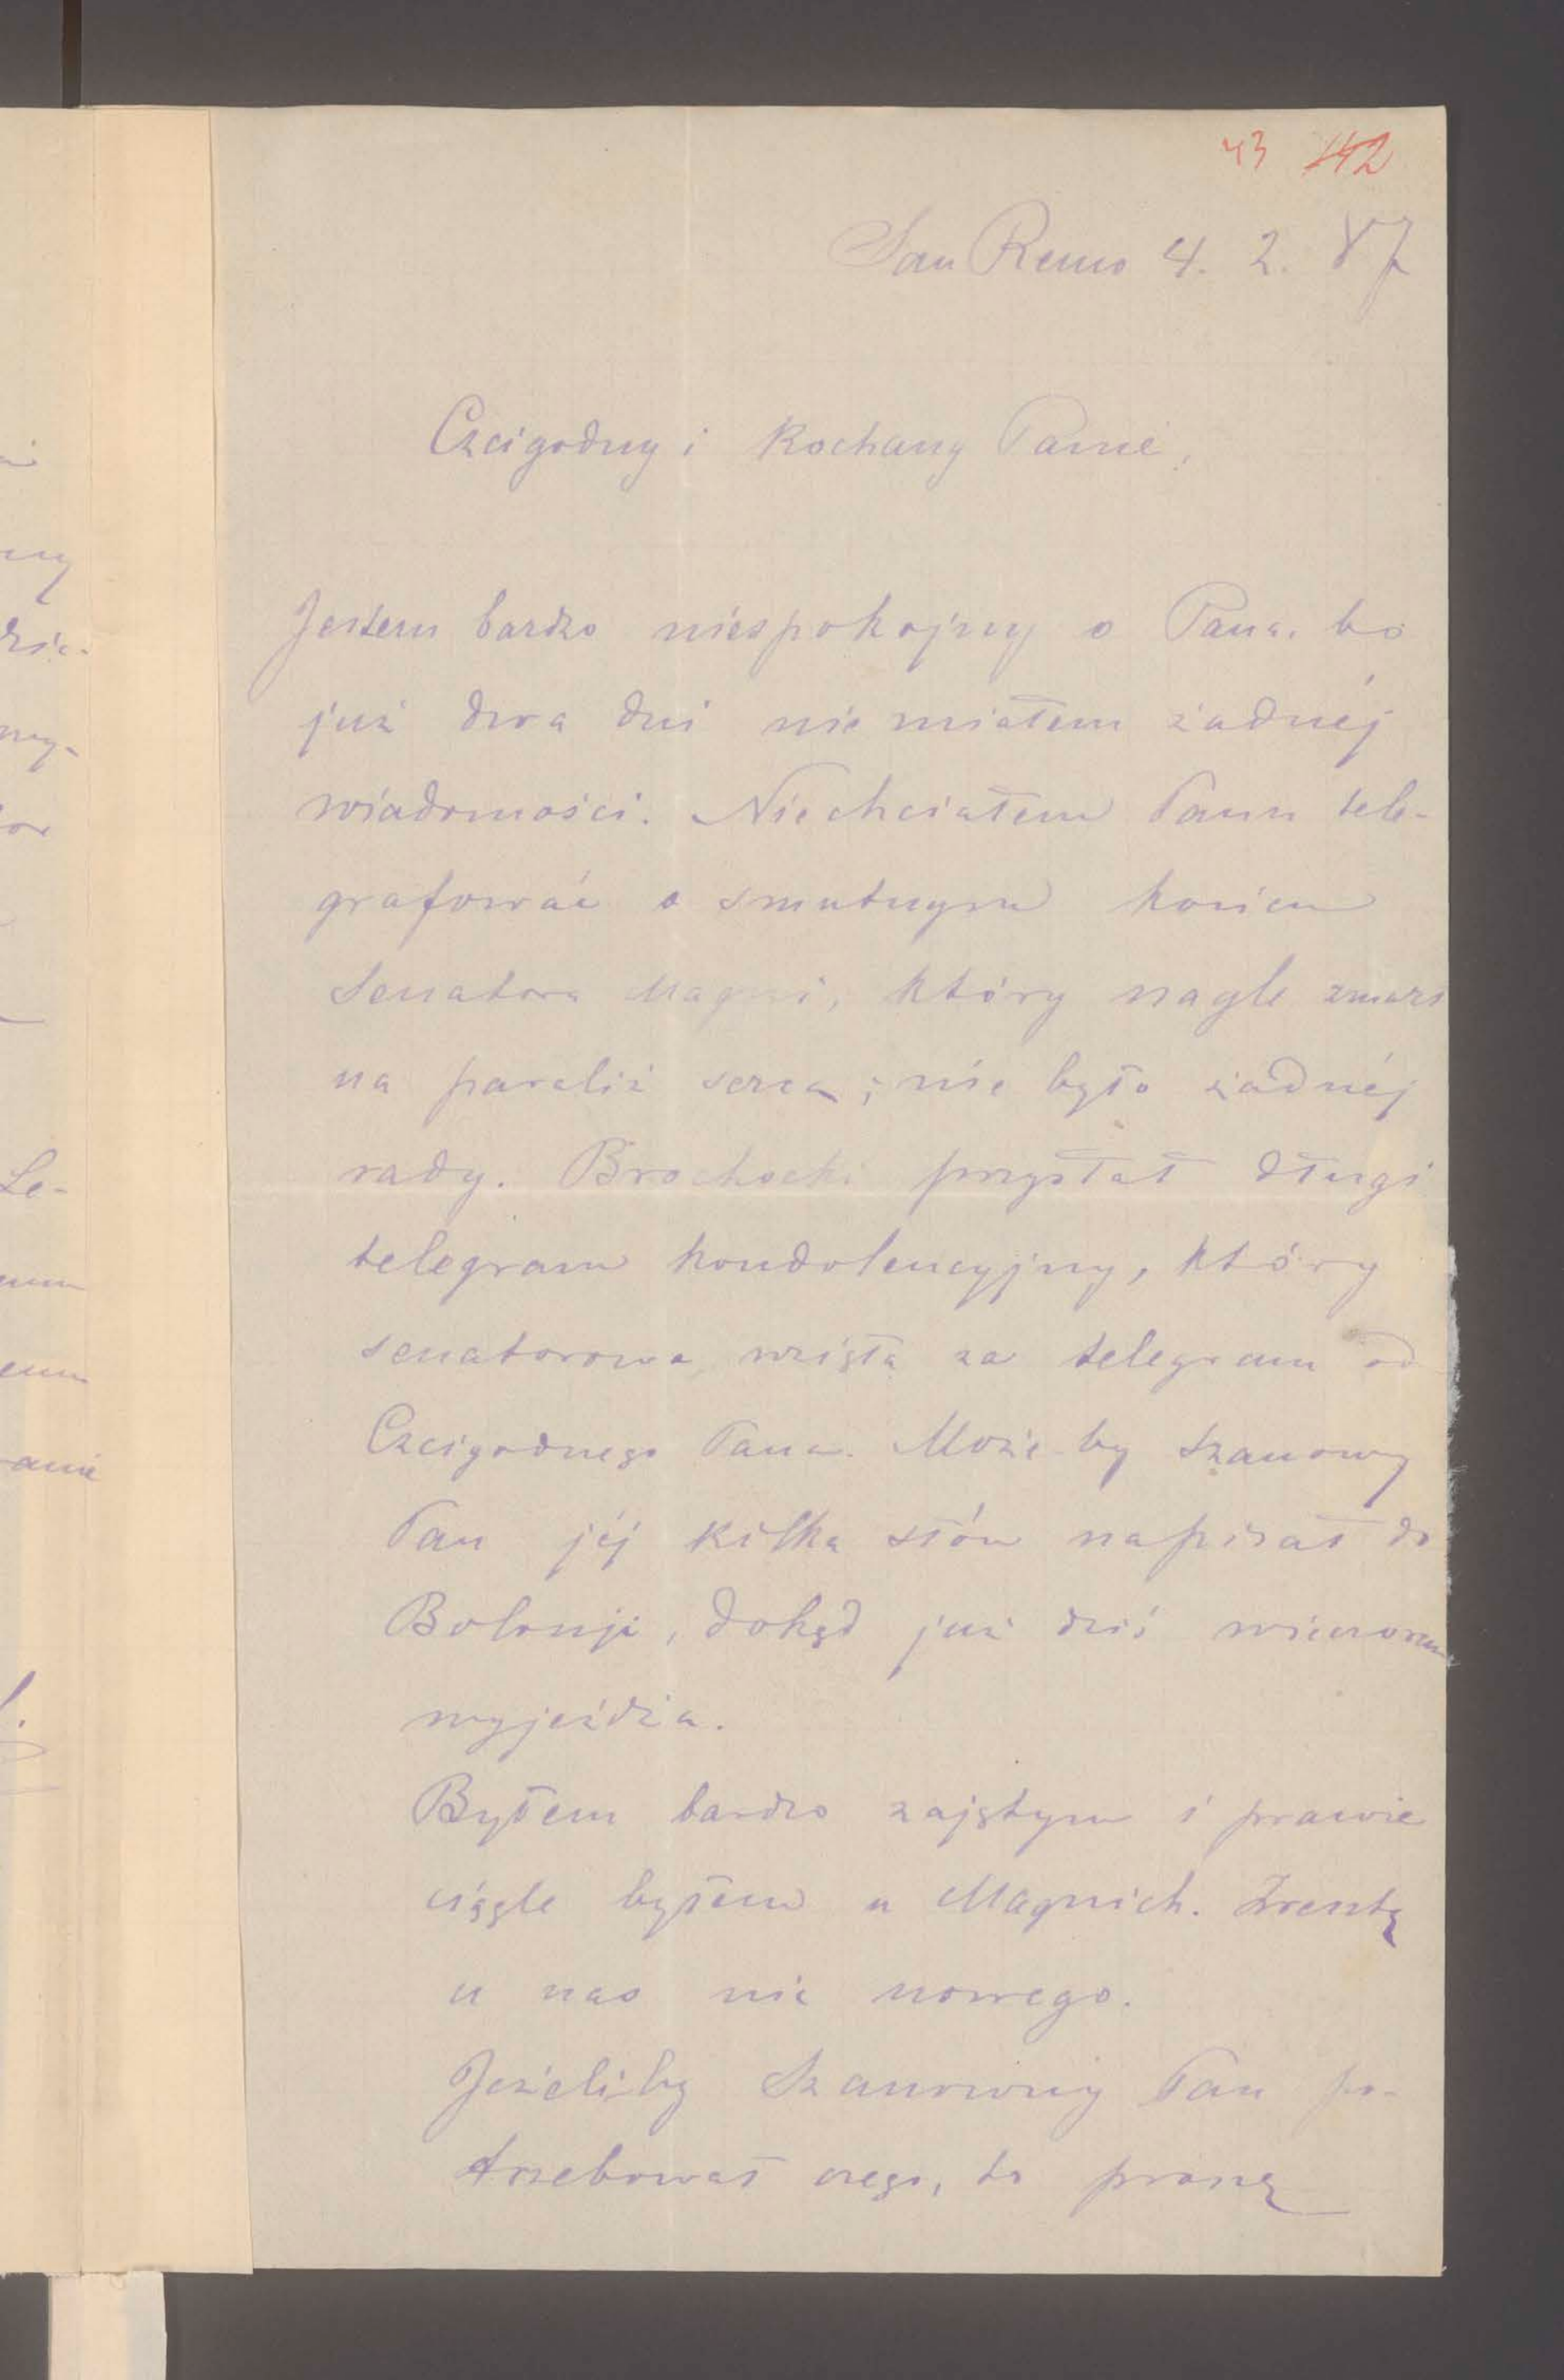 43 42
San Remo 4. 2. 87
Czcigodny i Kochany Panie,
Jestem bardzo niespokojny o Pana, bo
już dwa dni nie miałem żadnéj
wiadomości. Niechciałem Panu tele-
grafować o smutnym końcu
Senatora Magni, który nagle zmarł
na paraliż serca; nie było żadnéj
rady. Brochocki przysłał długi
telegram kondolencyjny, który
senatorowa wzięła za telegram od
Czcigodnego Pana. Może by Szanowny
Pan jéj kilka słów napisał do
Bolonji, dokąd już dziś wieczorem
wyjeżdża.
Byłem bardzo zajętym i prawie
ciągle byłem u Magnich. Zresztą
u nas nic nowego.
Jeżeliby Szanowny Pan po-
trzebował czego, to proszę